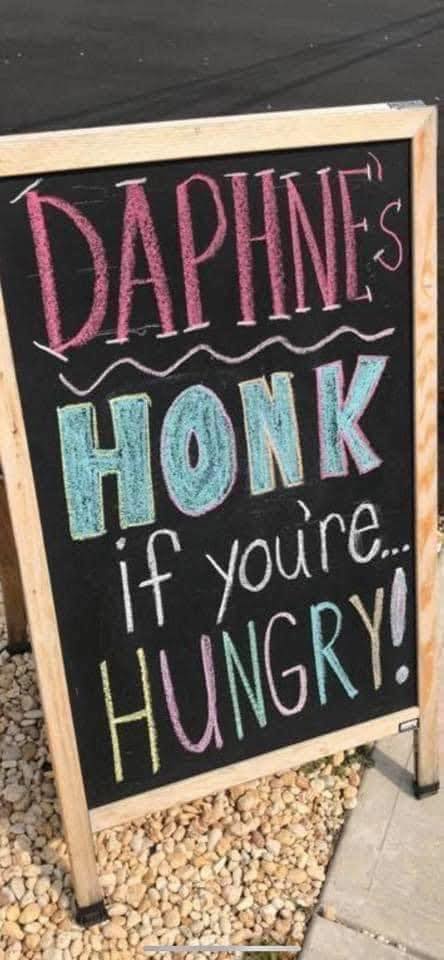 DAPHNE's
HONK
if you're...
HUNGRY!